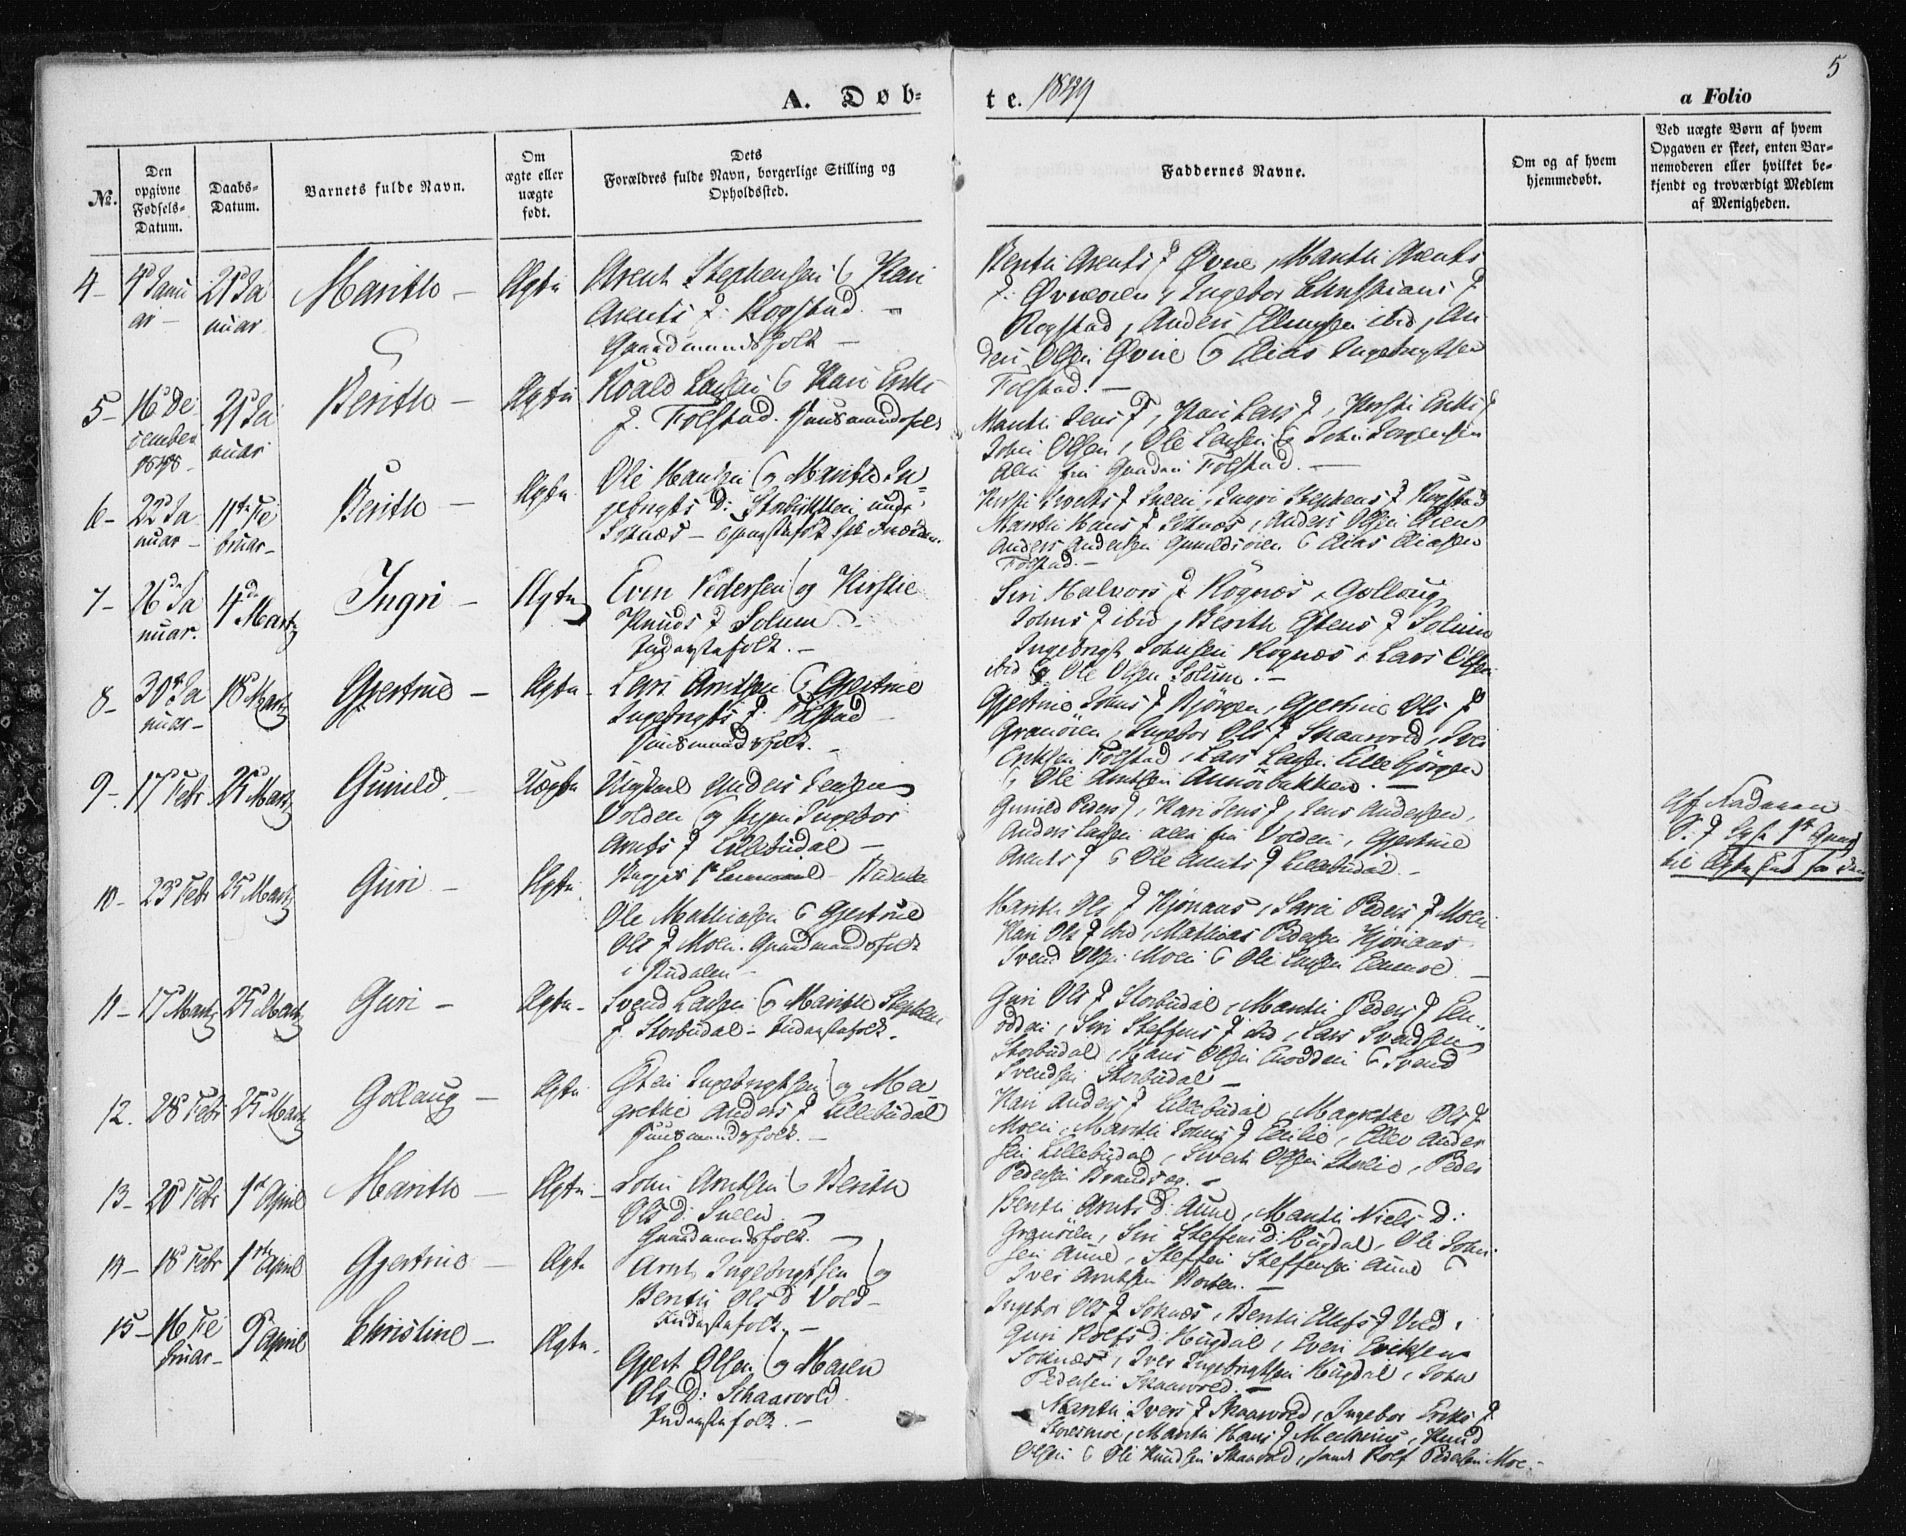 5
A. Døb-
te. 1849
a Folio
No.
Den
opgivne
Fødsels-
Datum.
Daabs-
Datum.
Barnets fulde Navn.
Om
ægte eller
uægte
født.
Dets
Forældres fulde Navn, borgerlige Stilling og
Opholdssted.
Faddernes Navne.
Om og af hvem
hjemmedøbt.
Ved uægte Børn af hvem
Opgaven er skeet, enten Bar-
nemoderen eller hvilket be-
kjendt og troværdigt Medlem
af Menigheden.
4 -
4de Janu
ar -
21de Ja
nuar
Marith -
Ægte
Arent Stephensen & Kari
Arents D. Rogstad. -
Gaardmandsfolk -
Arents D Øvrie, Arents
D. Ingebor Christians D
Rogstad, Anders Ellingsen ibid, An
ders Olsen Øvrie & Elias Ingebrigtsen
Folstad. -
5 -
16 De
cember
1848 -
21de Ja
nuar
Berith -
Ægte
Roald Larsen & Kari Eriks
D. Folstad. Huusmandsfolk
Marith Jens D, Kari Lars D, Kirsti Eriks D
John Olsen, Ole Larsen & John Jørgensen
alle fra Gaarden Folstad. -
6 -
22de Ja
nuar -
11te Fe
bruar -
Berith -
Ægte
Ole Hansen & Marith In
gebrigts D. under
Soknæs -
Ingri Stephens D Rogstad
Marith Hans D Soknæs, Anders Olsen
Anders Andersen & Elias Eliassen
Folstad. -
7 -
26de Ja
nuar.
4de
Martz
Ingri -
Ægte
Even Pedersen & Kirstie
Knuds D Solum -
Inderstefolk. -
Siri Halvors D Rognæs, Gollaug
Johns D ibid, Berith Estens D Solum
Ingebrigt Johnsen Rognæs, Lars Olsen
ibid & Ole Olsen Solum. -
8 -
30te Ja
nuar -
18 Martz
Gjertrud -
Ægte -
Lars Arntsen & Gjertrud
Ingebrigts D. Folstad
Huusmandsfolk. -
Gjertrud Johns D Bjørgen, Gjertrud Ols D
Granøien, Ingebor Ols D Skaarvold, Iver
Eriksen Folstad, Lars Larsen Lillebjørgen
& Ole Arntsen -
9 -
17 Febr
25 Martz
Gunild -
Uægte
Ungkarl Anders Jensen
Volden & Pige Ingebor
Arnts D Lillebudal -
Gunild Peders D, Kari Jens D, Jens Andersen,
Anders Larsen alle fra Volden, Gjertrud
Arents D & Ole Arents D Lillebudal. -
10 -
23 Febr
25 Martz
Guri -
Ægte
Ole Mathiasen & Gjertrud
Ols D Moen. Gaardmandsfolk
i Budalen -
Marith Ols D Kjønaas, Peders D Moen
Kari Ols D ibid, Mathias Pedersen Kjønaas
Svend Olsen Moen & Ole Larsen -
11 -
17 Martz
25 Martz
Guri -
Ægte -
Svend Larsen & Marith Stephens
D. Storbudal - Inderstefolk.
Guri Ols D Storbudal, Marith Peders D En-
odden, Siri Steffens D ibid, Lars Svendsen
Storbudal, Hans Olsen Enodden & Svend
Svendsen Storbudal -
12.
28 Febr
25 Martz
Gollaug -
Ægte
Østen Ingebrigtsen & Ma-
grethe Anders D Lillebudal
Huusmandsfolk. -
Kari Anders D Lillebudal, Magrethe Ols D
Moen, Marith Johns D, Ellev Ander
sen Lillebudal, Sivert Olsen, Peder
Pedersen -
13 -
20 Febr
1ste April
Marith -
Ægte -
John Arntsen & Berith
Ols D. -
Gaardmandsfolk. -
Berith Arnts D. Aune, Marith Niels D.
Granøien, Siri Steffens D. Hugdal, Ole John-
sen Aune, Steffen Steffensen Aune &
Iver Arntsen. -
14 -
18 Febr
1ste April
Gjertrud -
Ægte
Arnt Ingebrigtsen &
Berith Ols D Vold -
Inderstefolk. -
Ingebor Ols D Soknæs, Berith
Guri Rolfs D. Hugdal, Even Eriksen
Soknæs, Iver Ingebrigtsen Hugdal, John
Pedersen Skaarvold. -
15 -
16 Fe
bruar -
9de April
Christine -
Ægte.
Gjert Olsen & Maren
Ols D: Skaarvold.
Inderstefolk. -
Marith Ivers D Skaarvold, Ingebor Eriks D
Marith Hans D, Knud
Olsen & Ole Knudsen Skaarvold, samt Rolf Pedersen Moe. -